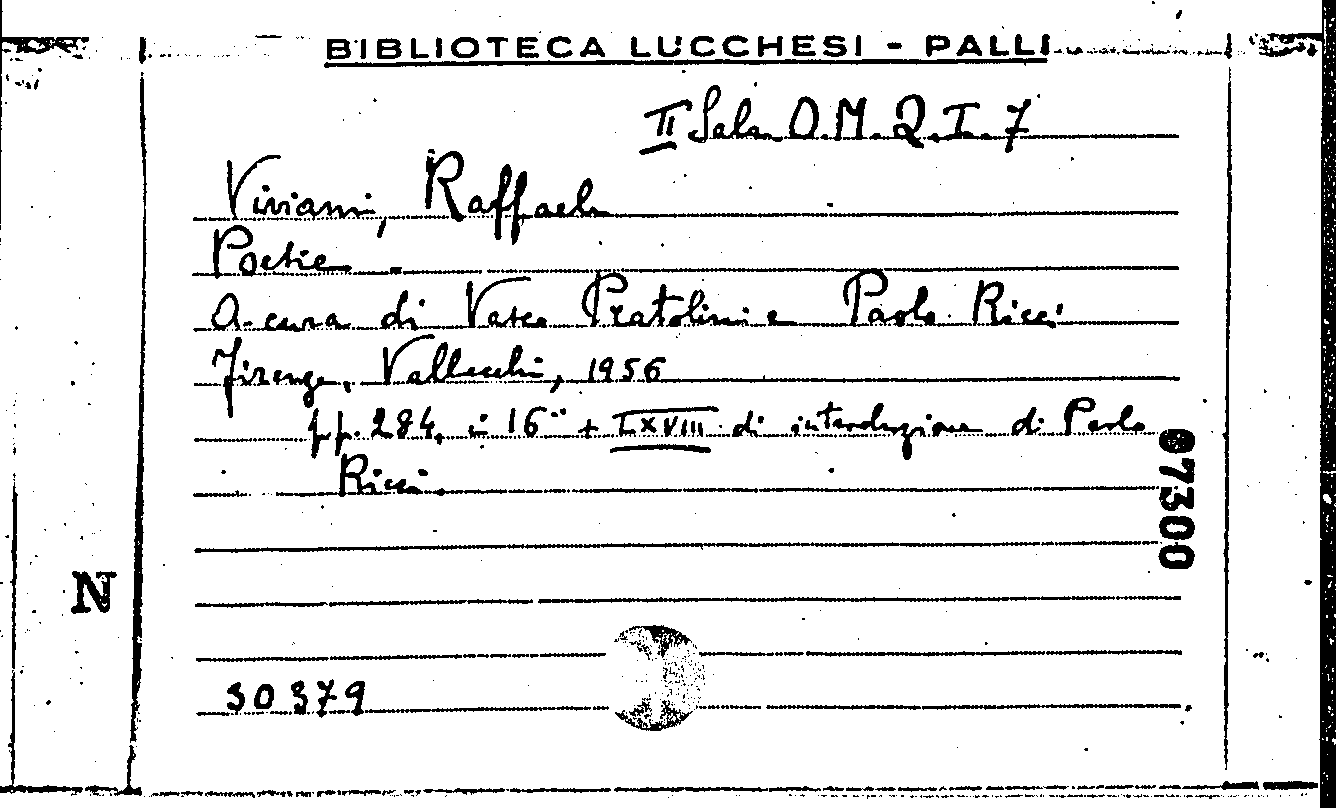 BIBLIOTECA LUCCHESI - PALLI
II Sala O.M. Q.I. 7
Viviani, Raffaele
Poesie.
A cura di Vasco Pratolini e Paolo Ricci
Firenze, Vallecchi, 1956
pp. 284, in 16° + LXVIII di introduzione di Paolo
Ricci.
07300
N
30379